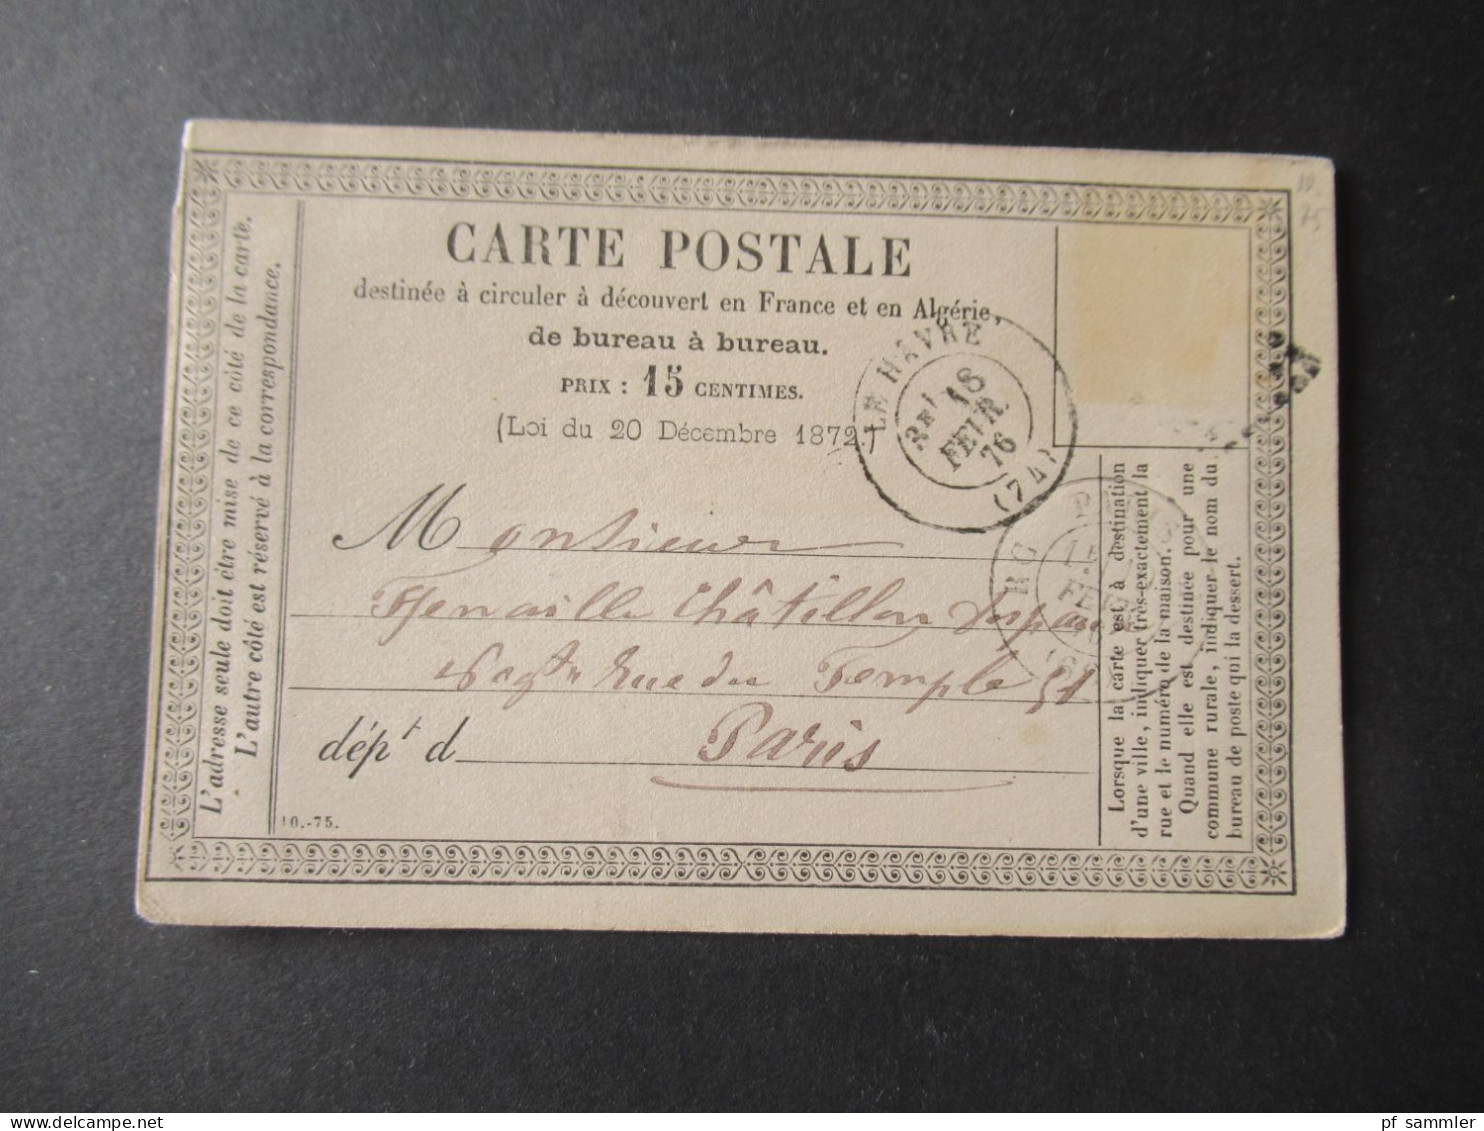 CARTE POSTALE
destinée à circuler à découvert en France et en Algérie,
de bureau à bureau.
PRIX : 15 CENTIMES.
(Loi du 20 Décembre 1872.)
L'adresse seule doit être mise de ce côté de la carte.
L'autre côté est réservé à la correspondance.
LE HAVRE
3E 18
FEVR.
76
(74)
Monsieur
Fenaille Châtillon
rue du Temple 51
dépt d Paris
10.-75.
Lorsque la carte est à destination
d'une ville, indiquer très-exactement la
rue et le numéro de la maison.
Quand elle est destinée pour une
commune rurale, indiquer le nom du
bureau de poste qui la dessert.
10.
75
pf sammler